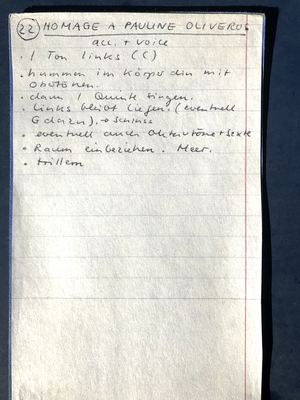 22 HOMAGE A PAULINE OLIVEROS
acc. + Voice
· 1 Ton links (C)
· hummen im Körper din mit
Obertönen.
· dann 1 Quinte singen.
· links bleibt liegen. (eventuell
G dazu), → Schluss
· eventuell auch Oktavtöne + Sexte
· Raum einbeziehen. Meer.
· trillern